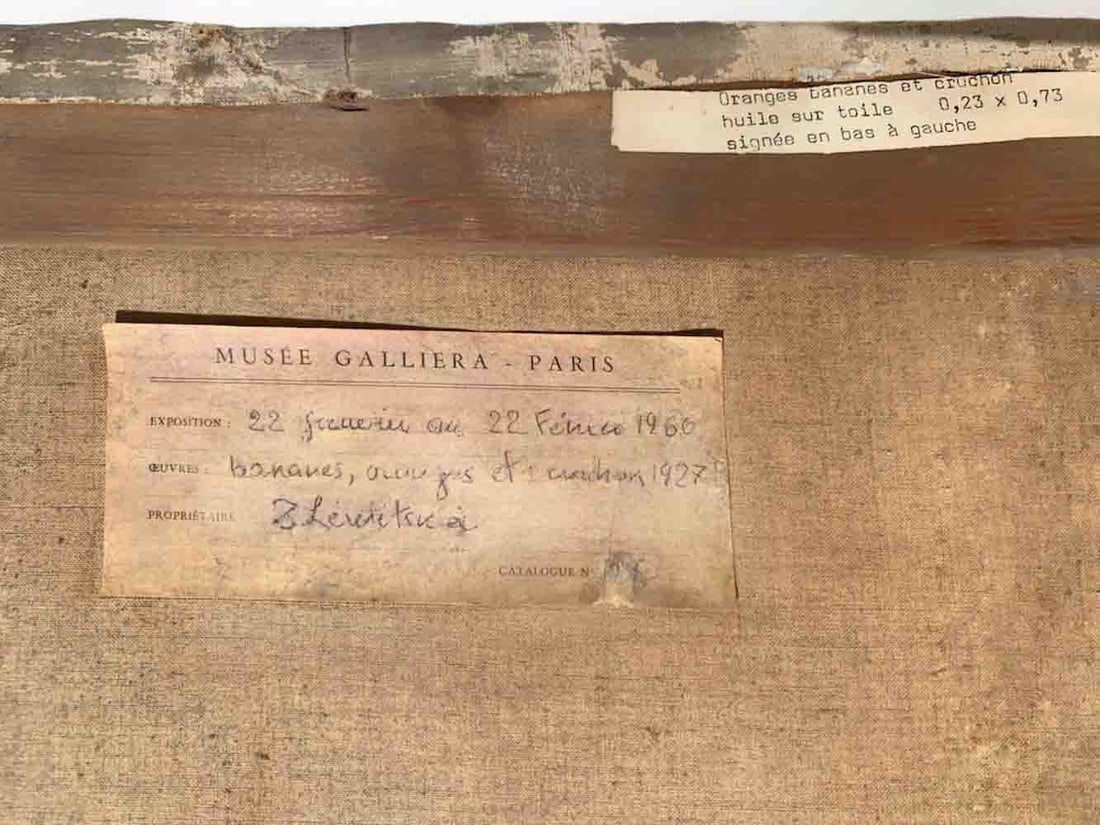 Oranges bananes et cruchon
huile sur toile 0,23 x 0,73
signée en bas à gauche
MUSÉE GALLIERA - PARIS
EXPOSITION : 22 au 22 1960
ŒUVRES : bananes, et 1927
PROPRIÉTAIRE
CATALOGUE N°